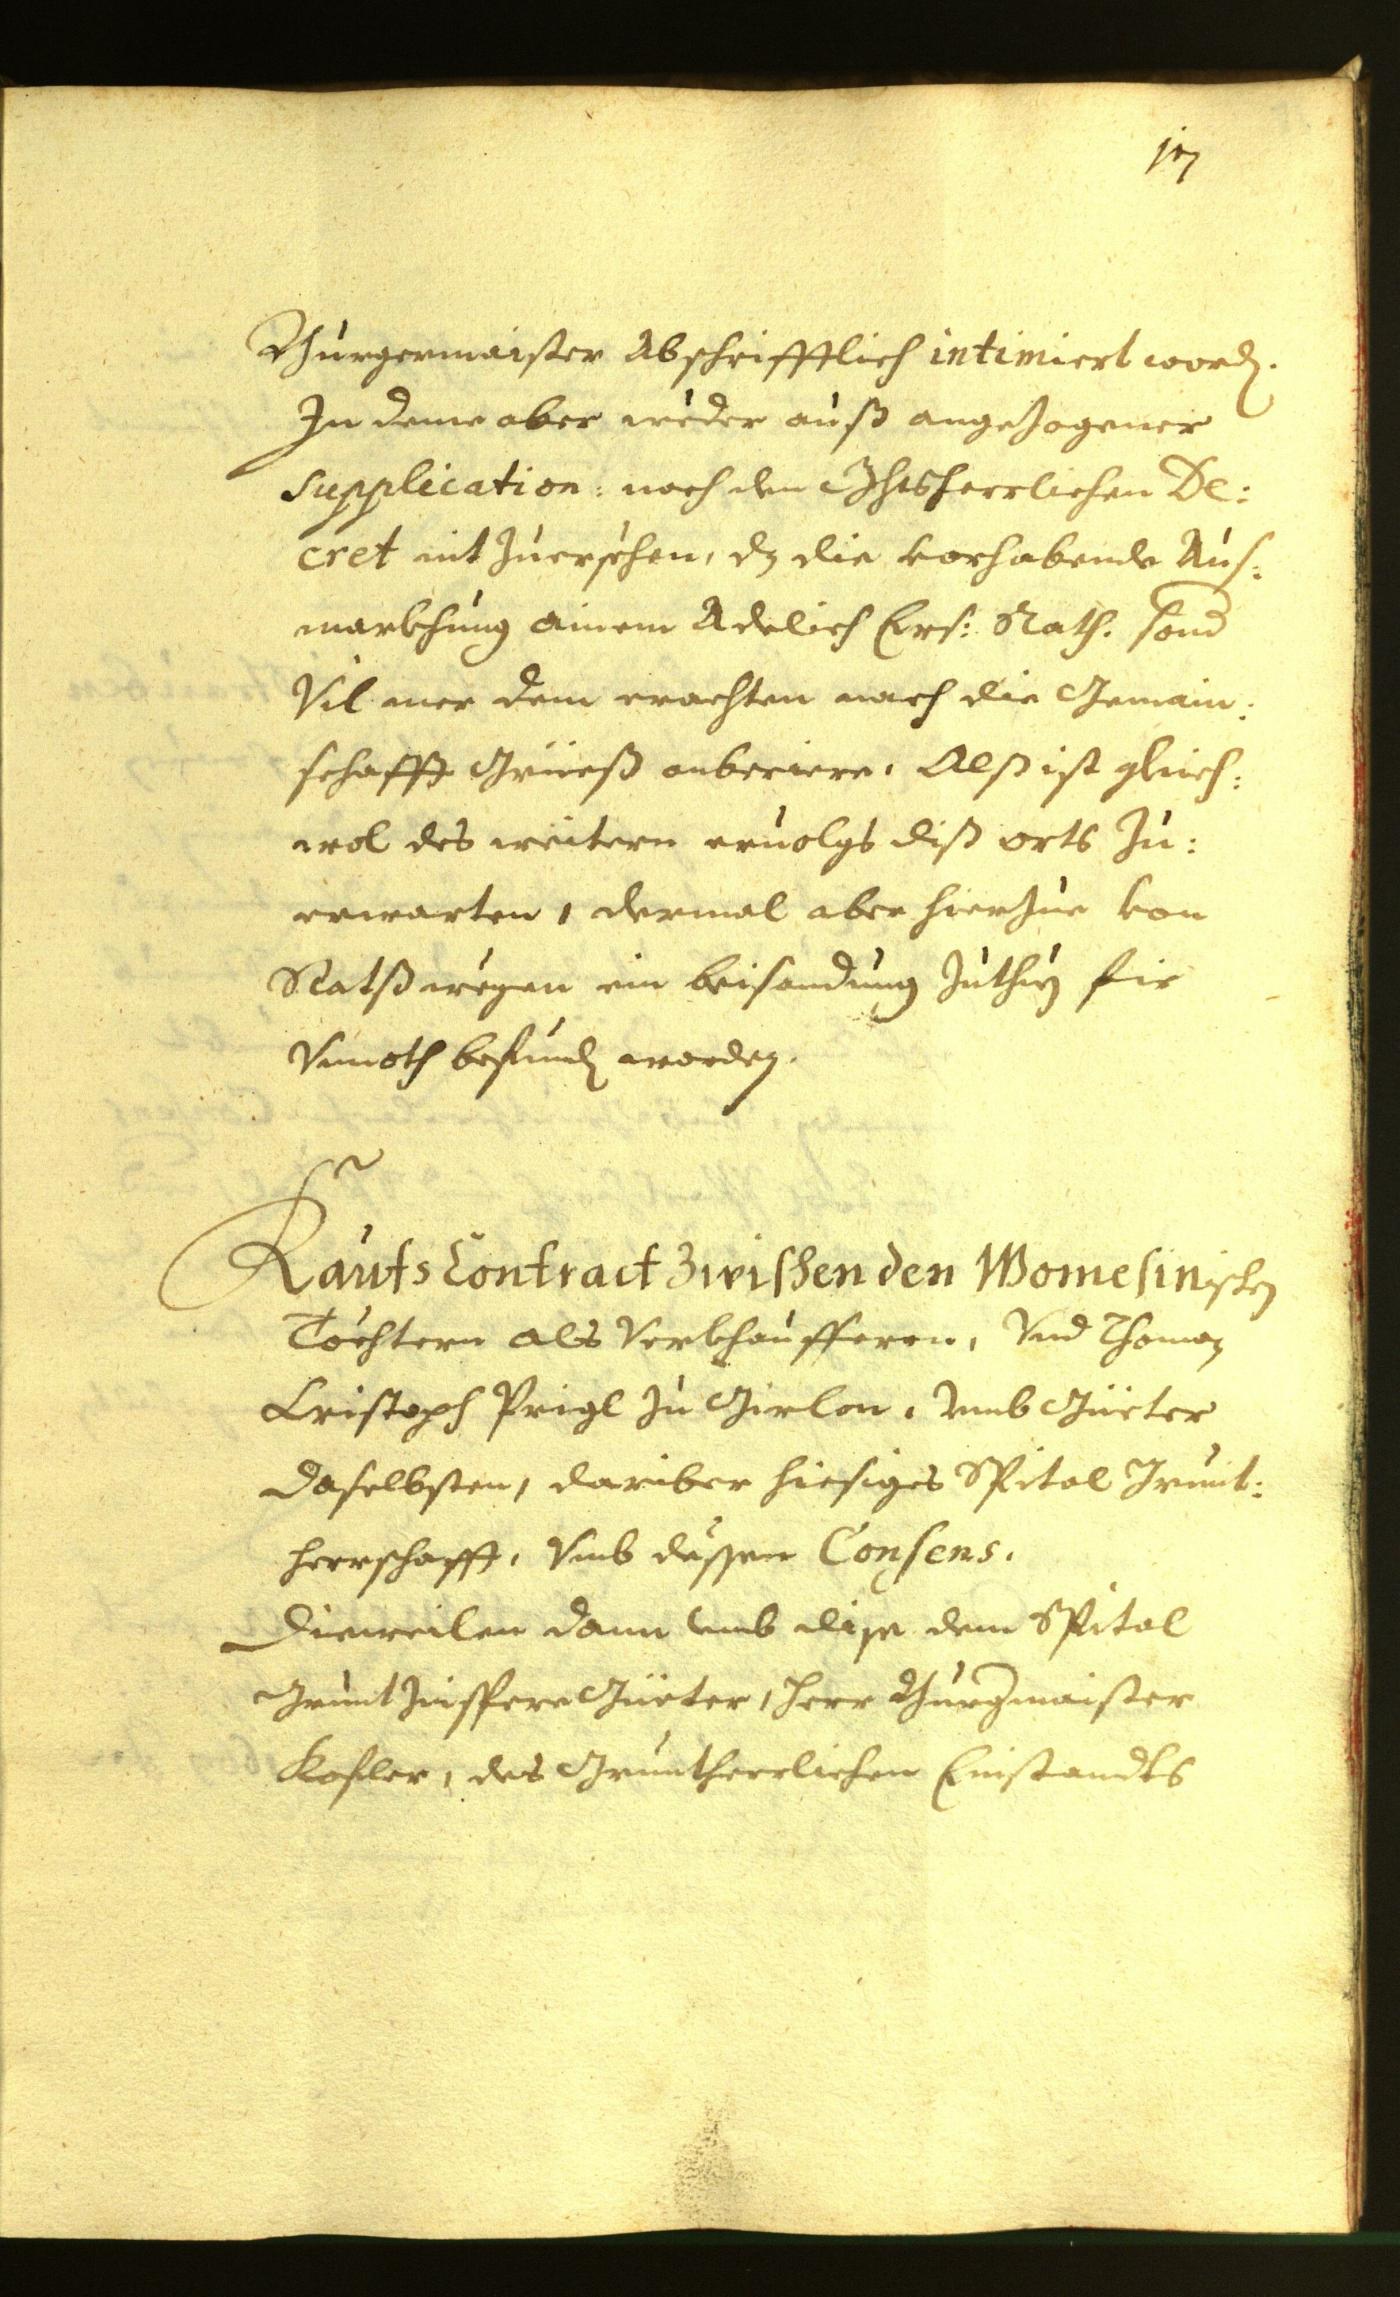 17
Burgermaister Abschrifftlich intimiert word.
In deme aber weder auß angezogener
supplication: noch den Ghtsherrlichen De:
cret nit zuersehen, dz die vorhabende Aus:
markhung ainem Adelich Ers: Rath. sond
Vil mer dem erachten nach die Gemain:
schafft Grieß anberiere. Alß ist gleich:
wol des weitern ervolgs diß orts zu:
erwarten, dermal aber hierzue von
Rats wegen ein beisandung zuthuen fir
Unnoth befund worden.
Kaufs Contract zwischen den Womesinischen
Töchtern als Verkhaufferen, Vnd Thoman
Cristoph Prigl zu Girlan, vmb Güeter
daselbsten, dariber hiesiges Spital Grunt:
herrschafft, Vmb dessen Consens.
Dieweilen dann vmb dise dem Spital
Grunt Zinspere Güeter, Herr Burgmaister
Kofler, des Gruntherrlichen Einstandts